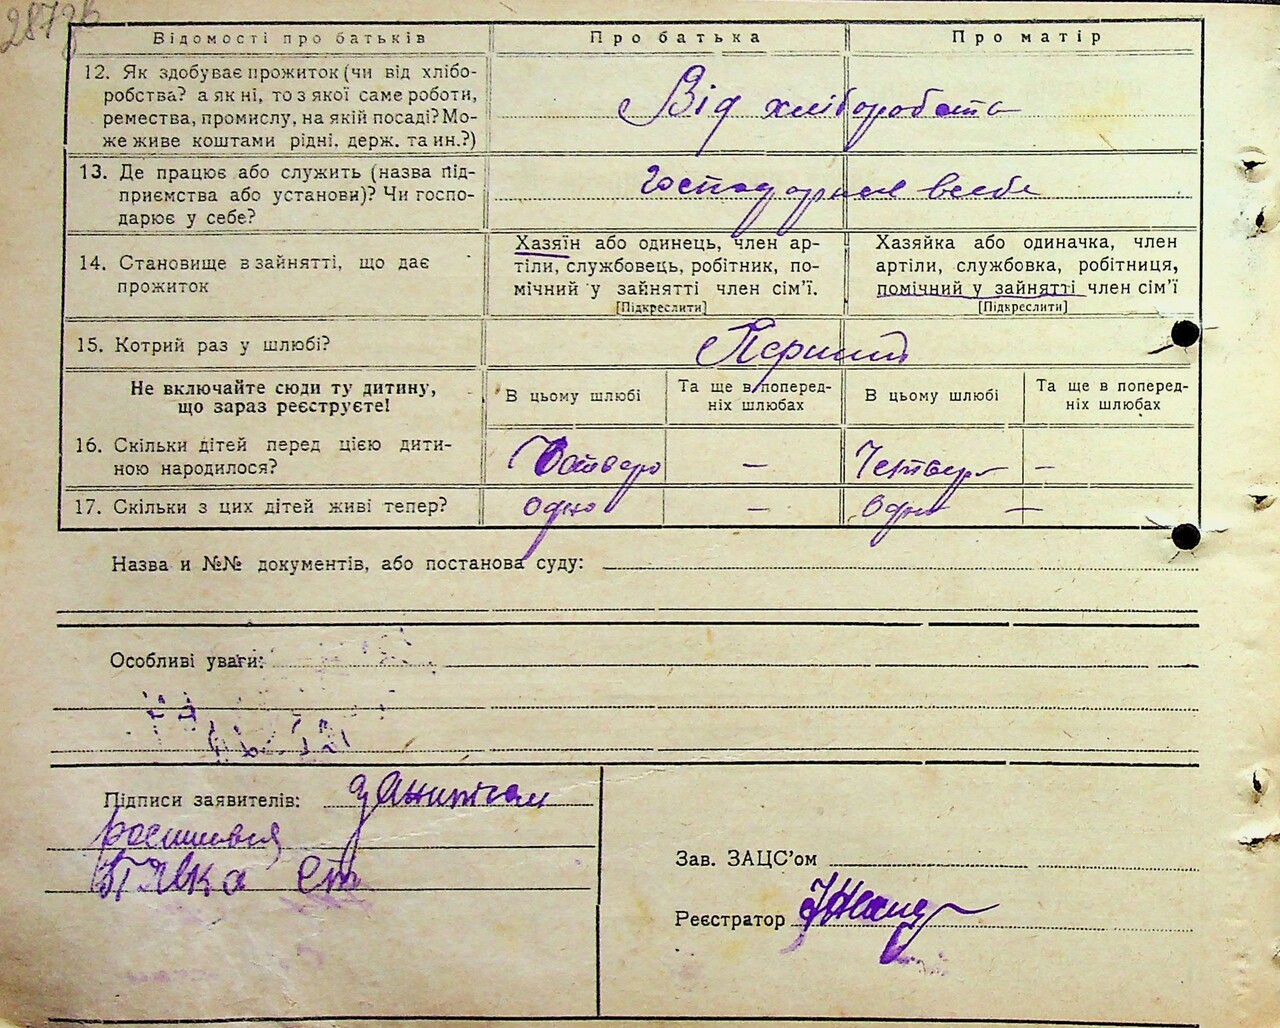 287зв
Відомості про батьків
Про батька
Про матір
12. Як здобуває прожиток (чи від хлібо-
робства? а як ні, то з якої саме роботи,
ремества, промислу, на якій посаді? Мо-
же живе коштами рідні, держ. та ин.?)
Від хліборобства
13. Де працює або служить (назва під-
приємства або установи)? Чи госпо-
дарює у себе?
Господарює в себе
14. Становище в зайнятті, що дає
прожиток
Хазяїн або одинець, член ар-
тіли, службовець, робітник, по-
мічний у зайнятті член сім'ї.
[Підкреслити]
Хазяйка або одиначка, член
артіли, службовка, робітниця,
помічний у зайнятті член сім'ї
[Підкреслити]
15. Котрий раз у шлюбі?
Перший
Не включайте сюди ту дитину,
що зараз реєструєте!
В цьому шлюбі
Та ще в поперед-
ніх шлюбах
В цьому шлюбі
Та ще в поперед-
ніх шлюбах
16. Скільки дітей перед цією дити-
ною народилося?
Четверо — Четверо —
17. Скільки з цих дітей живі тепер?
Одно — Одно —
Назва и №№ документів, або постанова суду:
Особливі уваги:
Підписи заявителів:
Зав. ЗАЦС'ом
Реєстратор